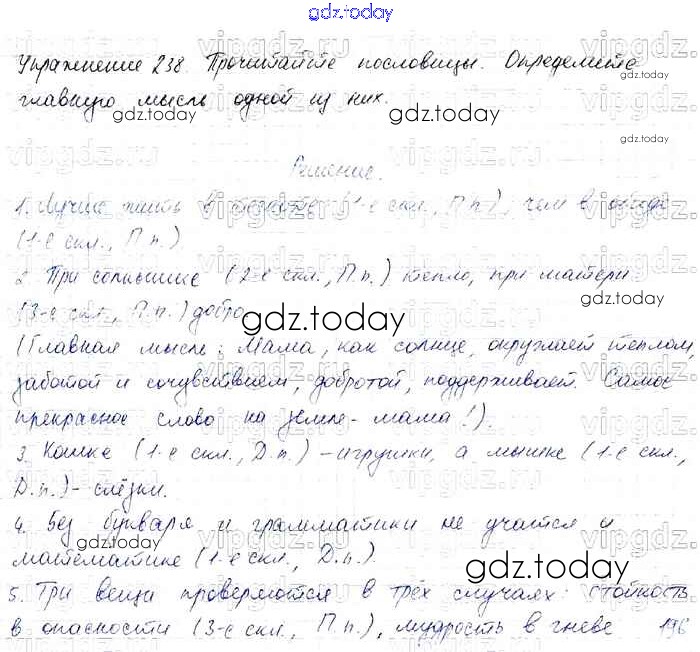 gdz.today
Упражнение 238. Прочитайте пословицы. Определите
главную мысль одной из них.
Решение.
1. Лучше жить в тесноте (1-е скл., П.п.), чем в обиде
(1-е скл., П.п.)
2. При солнышке (2-е скл., П.п.) тепло, при матери
(3-е скл., П.п.) добро
(Главная мысль: Мама, как солнце, окружает теплом
заботой и сочувствием, добротой, поддерживает. Самое
прекрасное слово на земле - мама!).
3. Кошке (1-е скл., Д.п.) - игрушки, а мышке (1-е скл.,
Д.п.) - слёзки.
4. Без букваря и грамматики не учатся и
математике (1-е скл., Д.п.).
5. Три вещи проверяются в трёх случаях: стойкость
в опасности (3-е скл., П.п.), мудрость в гневе 196